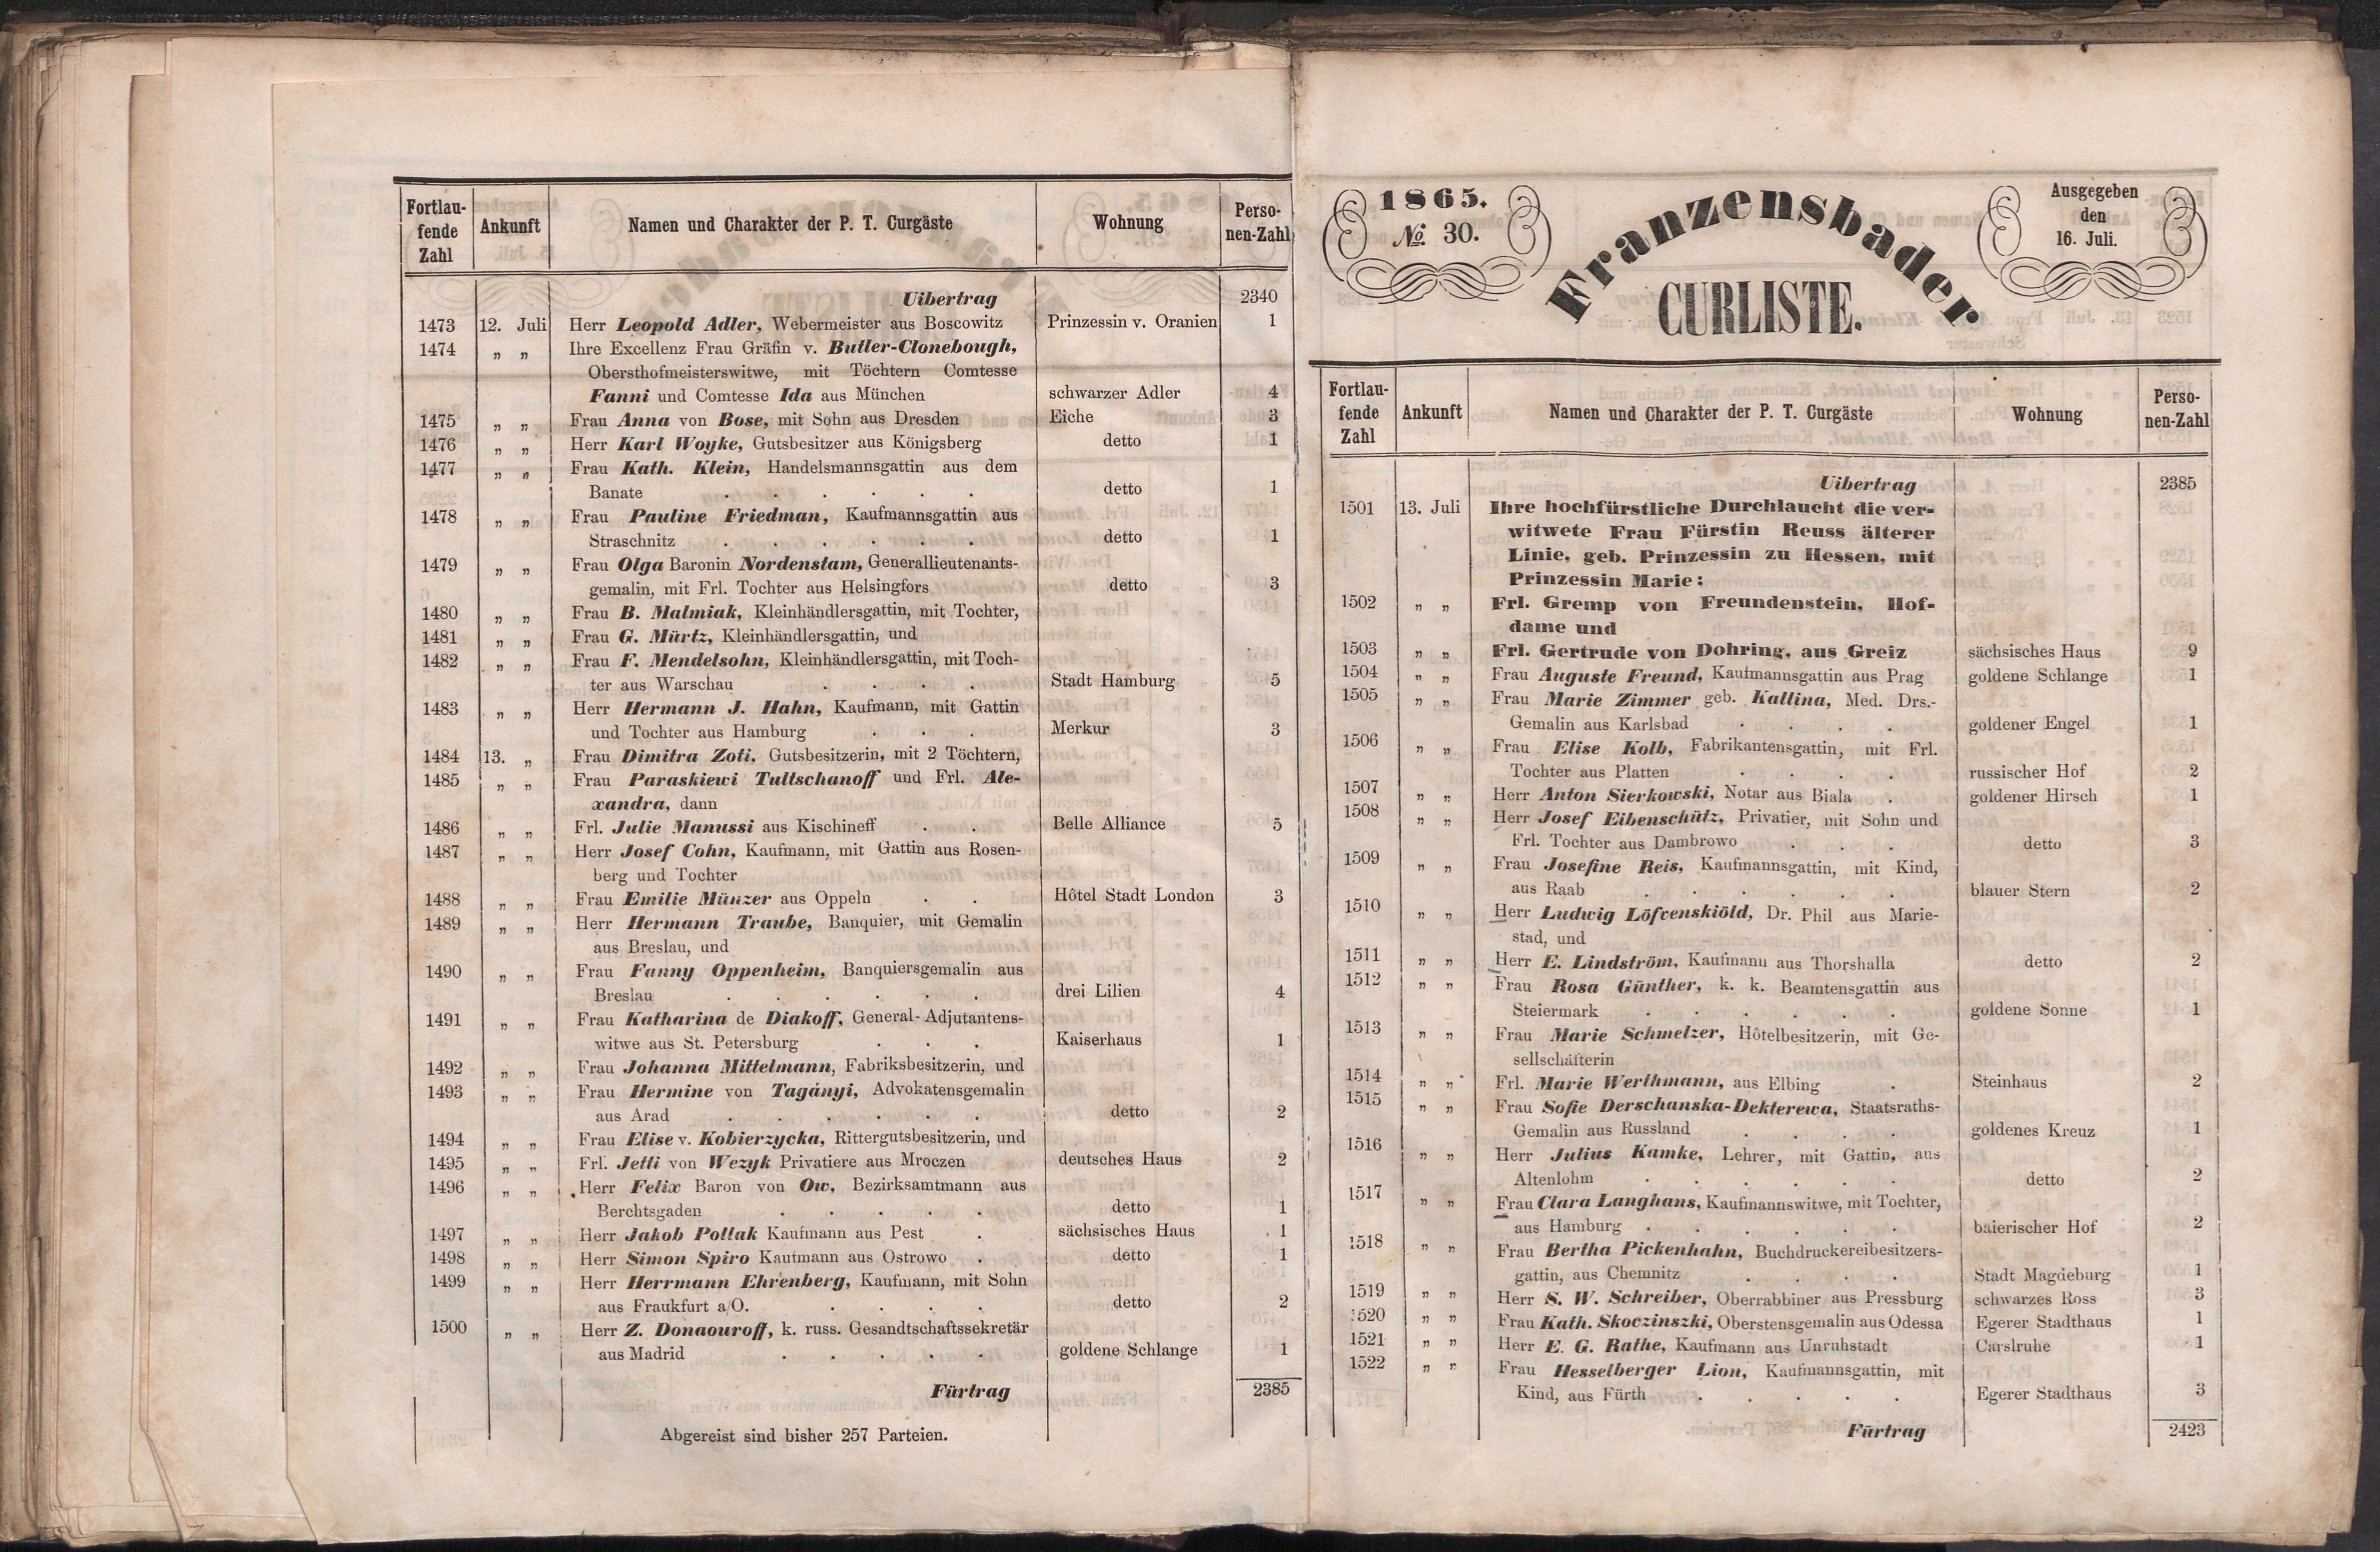 Fortlau-
fende
Zahl
Ankunft
Namen und Charakter der P. T. Curgäste
Wohnung
Perso-
nen-Zahl
Uibertrag 2340
1473 12. Juli Herr Leopold Adler, Webermeister aus Boscowitz Prinzessin v. Oranien 1
1474 „ „ Ihre Excellenz Frau Gräfin v. Butler-Clonebough,
Obersthofmeisterswitwe, mit Töchtern Comtesse
Fanni und Comtesse Ida aus München schwarzer Adler 4
1475 „ „ Frau Anna von Bose, mit Sohn aus Dresden Eiche 3
1476 „ „ Herr Karl Woyke, Gutsbesitzer aus Königsberg detto 1
1477 „ „ Frau Kath. Klein, Handelsmannsgattin aus dem
Banate . . . . . . detto 1
1478 „ „ Frau Pauline Friedman, Kaufmannsgattin aus
Straschnitz . . . . . . detto 1
1479 „ „ Frau Olga Baronin Nordenstam, Generallieutenants-
gemalin, mit Frl. Tochter aus Helsingfors detto 3
1480 „ „ Frau B. Malmiak, Kleinhändlersgattin, mit Tochter,
1481 „ „ Frau G. Mürtz, Kleinhändlersgattin, und
1482 „ „ Frau F. Mendelsohn, Kleinhändlersgattin, mit Toch-
ter aus Warschau . . . . Stadt Hamburg 5
1483 „ „ Herr Hermann J. Hahn, Kaufmann, mit Gattin
und Tochter aus Hamburg . . . Merkur 3
1484 13. „ Frau Dimitra Zoti, Gutsbesitzerin, mit 2 Töchtern,
1485 „ „ Frau Paraskiewi Tultschanoff und Frl. Ale-
xandra, dann
1486 „ „ Frl. Julie Manussi aus Kischineff . . Belle Alliance 5
1487 „ „ Herr Josef Cohn, Kaufmann, mit Gattin aus Rosen-
berg und Tochter
1488 „ „ Frau Emilie Münzer aus Oppeln . . Hôtel Stadt London 3
1489 „ „ Herr Hermann Traube, Banquier, mit Gemalin
aus Breslau, und
1490 „ „ Frau Fanny Oppenheim, Banquiersgemalin aus
Breslau . . . . . . drei Lilien 4
1491 „ „ Frau Katharina de Diakoff, General-Adjutantens-
witwe aus St. Petersburg . . . Kaiserhaus 1
1492 „ „ Frau Johanna Mittelmann, Fabriksbesitzerin, und
1493 „ „ Frau Hermine von Tagányi, Advokatensgemalin
aus Arad . . . . . . detto 2
1494 „ „ Frau Elise v. Kobierzycka, Rittergutsbesitzerin, und
1495 „ „ Frl. Jetti von Wezyk Privatiere aus Mroczen deutsches Haus 2
1496 „ „ Herr Felix Baron von Ow, Bezirksamtmann aus
Berchtsgaden . . . . . detto 1
1497 „ „ Herr Jakob Pollak Kaufmann aus Pest . sächsisches Haus 1
1498 „ „ Herr Simon Spiro Kaufmann aus Ostrowo . detto 1
1499 „ „ Herr Herrmann Ehrenberg, Kaufmann, mit Sohn
aus Fraukfurt a/O. . . . . detto 2
1500 „ „ Herr Z. Donaouroff, k. russ. Gesandtschaftssekretär
aus Madrid . . . . . goldene Schlange 1
Fürtrag 2385
Abgereist sind bisher 257 Parteien.
1865.
No. 30.
Franzensbader
CURLISTE.
Ausgegeben
den
16. Juli.
Fortlau-
fende
Zahl
Ankunft
Namen und Charakter der P. T. Curgäste
Wohnung
Perso-
nen-Zahl
Uibertrag 2385
1501 13. Juli Ihre hochfürstliche Durchlaucht die ver-
witwete Frau Fürstin Reuss älterer
Linie, geb. Prinzessin zu Hessen, mit
Prinzessin Marie;
1502 „ „ Frl. Gremp von Freundenstein, Hof-
dame und
1503 „ „ Frl. Gertrude von Dohring, aus Greiz sächsisches Haus 9
1504 „ „ Frau Auguste Freund, Kaufmannsgattin aus Prag goldene Schlange 1
1505 „ „ Frau Marie Zimmer geb. Kallina, Med. Drs.-
Gemalin aus Karlsbad . . . . goldener Engel 1
1506 „ „ Frau Elise Kolb, Fabrikantensgattin, mit Frl.
Tochter aus Platten . . . . russischer Hof 2
1507 „ „ Herr Anton Sierkowski, Notar aus Biala . goldener Hirsch 1
1508 „ „ Herr Josef Eibenschütz, Privatier, mit Sohn und
Frl. Tochter aus Dambrowo . . . detto 3
1509 „ „ Frau Josefine Reis, Kaufmannsgattin, mit Kind,
aus Raab . . . . . . blauer Stern 2
1510 „ „ Herr Ludwig Löfvenskiöld, Dr. Phil aus Marie-
stad, und
1511 „ „ Herr E. Lindström, Kaufmann aus Thorshalla detto 2
1512 „ „ Frau Rosa Günther, k. k. Beamtensgattin aus
Steiermark . . . . . . goldene Sonne 1
1513 „ „ Frau Marie Schmelzer, Hôtelbesitzerin, mit Ge-
sellschäfterin
1514 „ „ Frl. Marie Werthmann, aus Elbing . Steinhaus 2
1515 „ „ Frau Sofie Derschanska-Dekterewa, Staatsraths-
Gemalin aus Russland . . . . goldenes Kreuz 1
1516 „ „ Herr Julius Kamke, Lehrer, mit Gattin, aus
Altenlohm . . . . . . detto 2
1517 „ „ Frau Clara Langhans, Kaufmannswitwe, mit Tochter,
aus Hamburg . . . . . . baierischer Hof 2
1518 „ „ Frau Bertha Pickenhahn, Buchdruckereibesitzers-
gattin, aus Chemnitz . . . . Stadt Magdeburg 1
1519 „ „ Herr S. W. Schreiber, Oberrabbiner aus Pressburg schwarzes Ross 3
1520 „ „ Frau Kath. Skoczinszki, Oberstensgemalin aus Odessa Egerer Stadthaus 1
1521 „ „ Herr E. G. Rathe, Kaufmann aus Unruhstadt Carslruhe 1
1522 „ „ Frau Hesselberger Lion, Kaufmannsgattin, mit
Kind, aus Fürth . . . . . Egerer Stadthaus 3
Fürtrag 2423